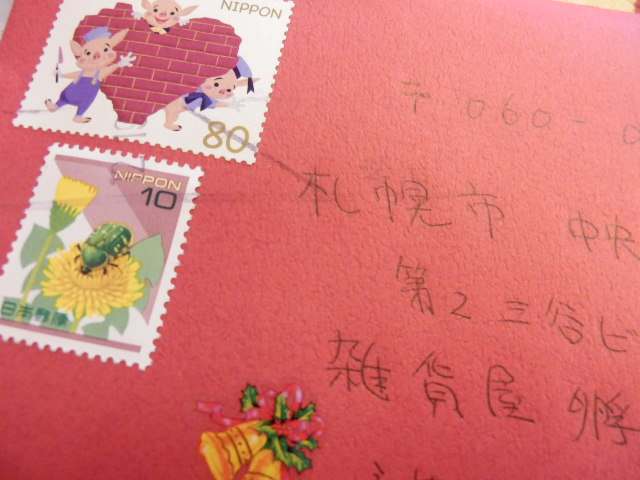 NIPPON
80
NIPPON
10
日本郵便
〒060-0
札幌市 中央
第2三谷ビ
雑貨屋 孵